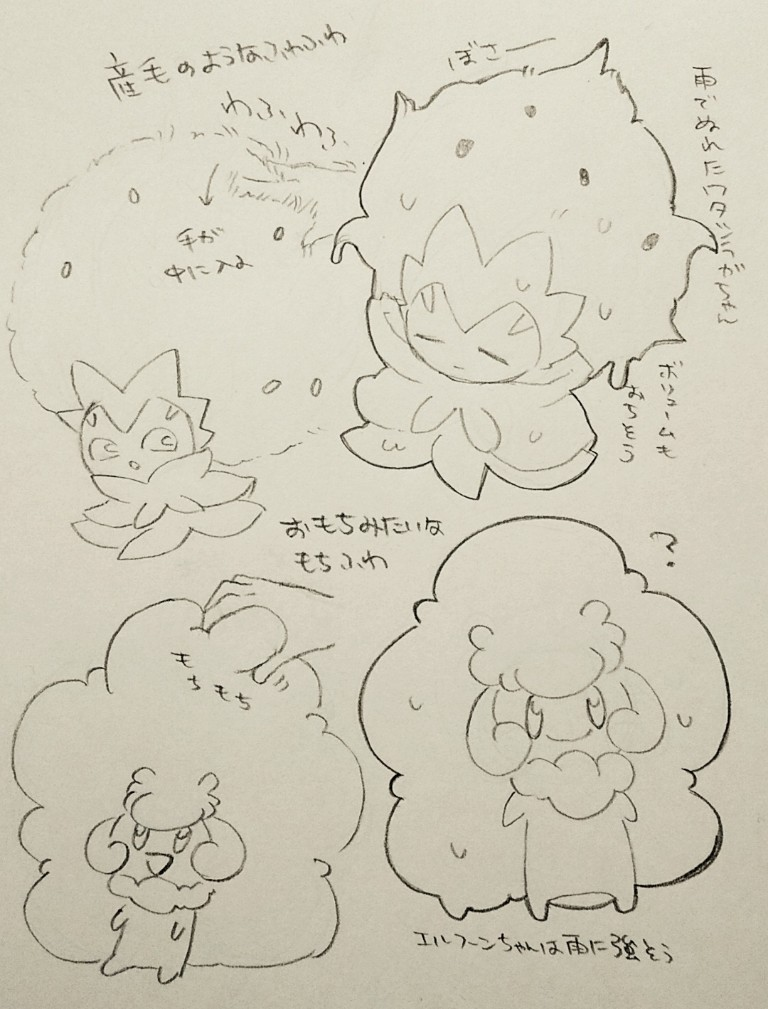 産毛のようなふわふわ
わふ
わふ
手が
中に入る
ぼさー
雨でぬれたワタシラガさん
ボリュームも
おちそう
おもちみたいな
もちふわ
もち
もち
?
エルフーンちゃんは雨に強そう